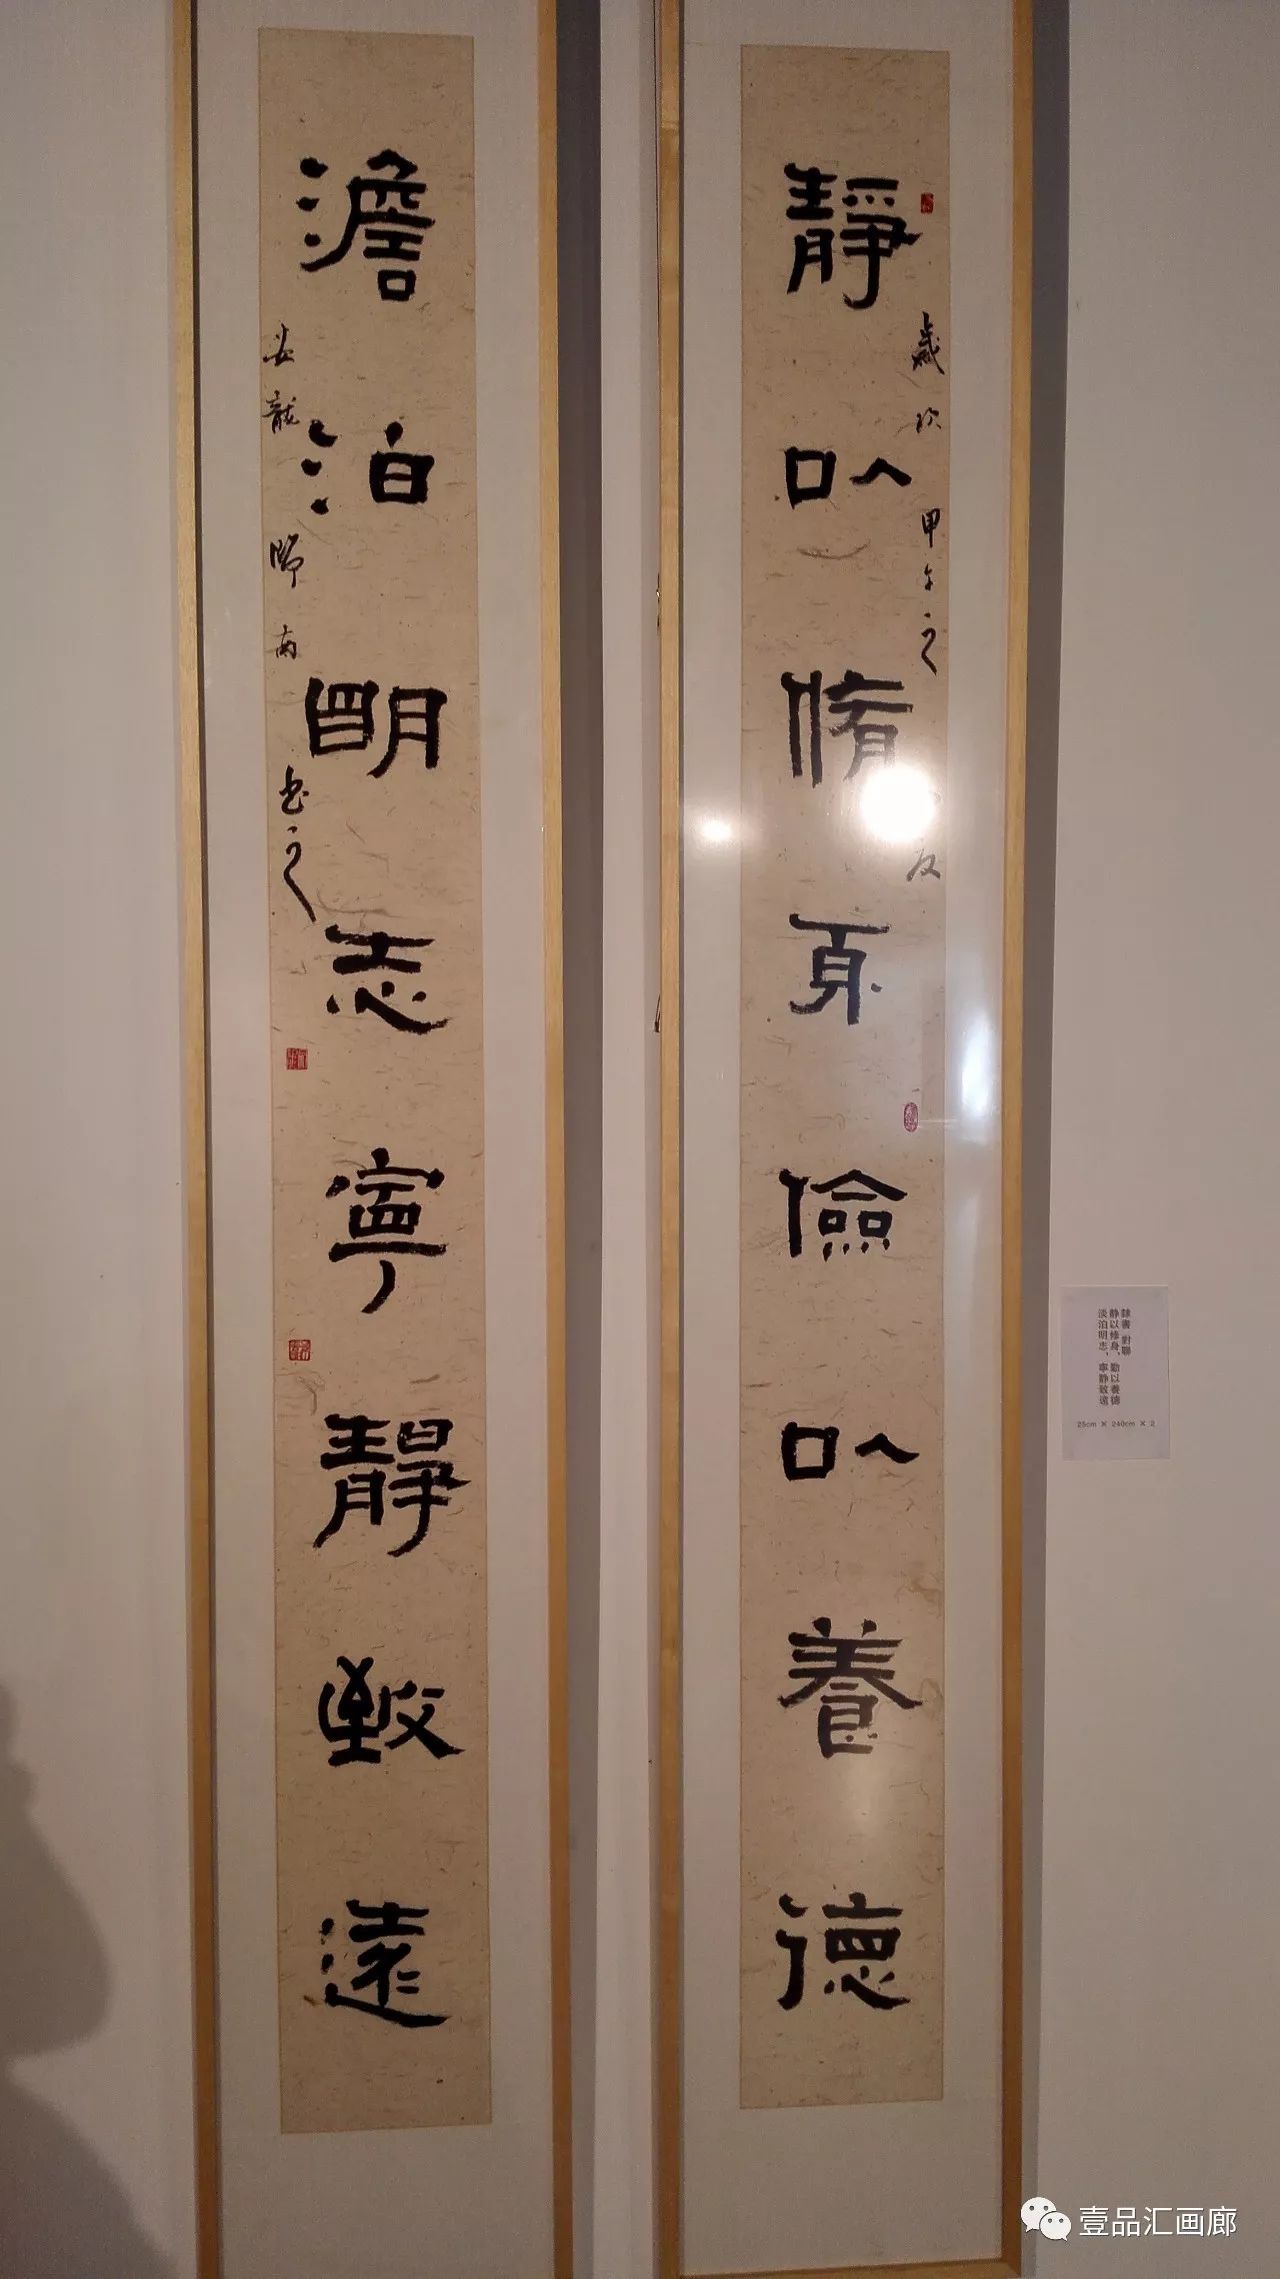 靜以脩身儉以養德
歲次甲午之
澹泊明志寧靜致遠
隸書 對聯
静以修身、勤以養德
淡泊明志、寧静致遠
25cm × 240cm × 2
壹品汇画廊